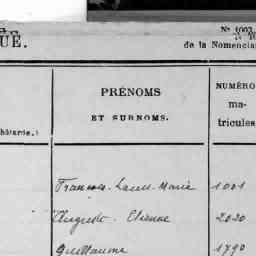 UE.
Nº 1003
de la Nomencla
PRÉNOMS
ET SURNOMS.
NUMÉRO
ma-
tricules
bâtarde.)
François-Louis-Marie 1001
Auguste-Etienne 2020
Guillaume 1790